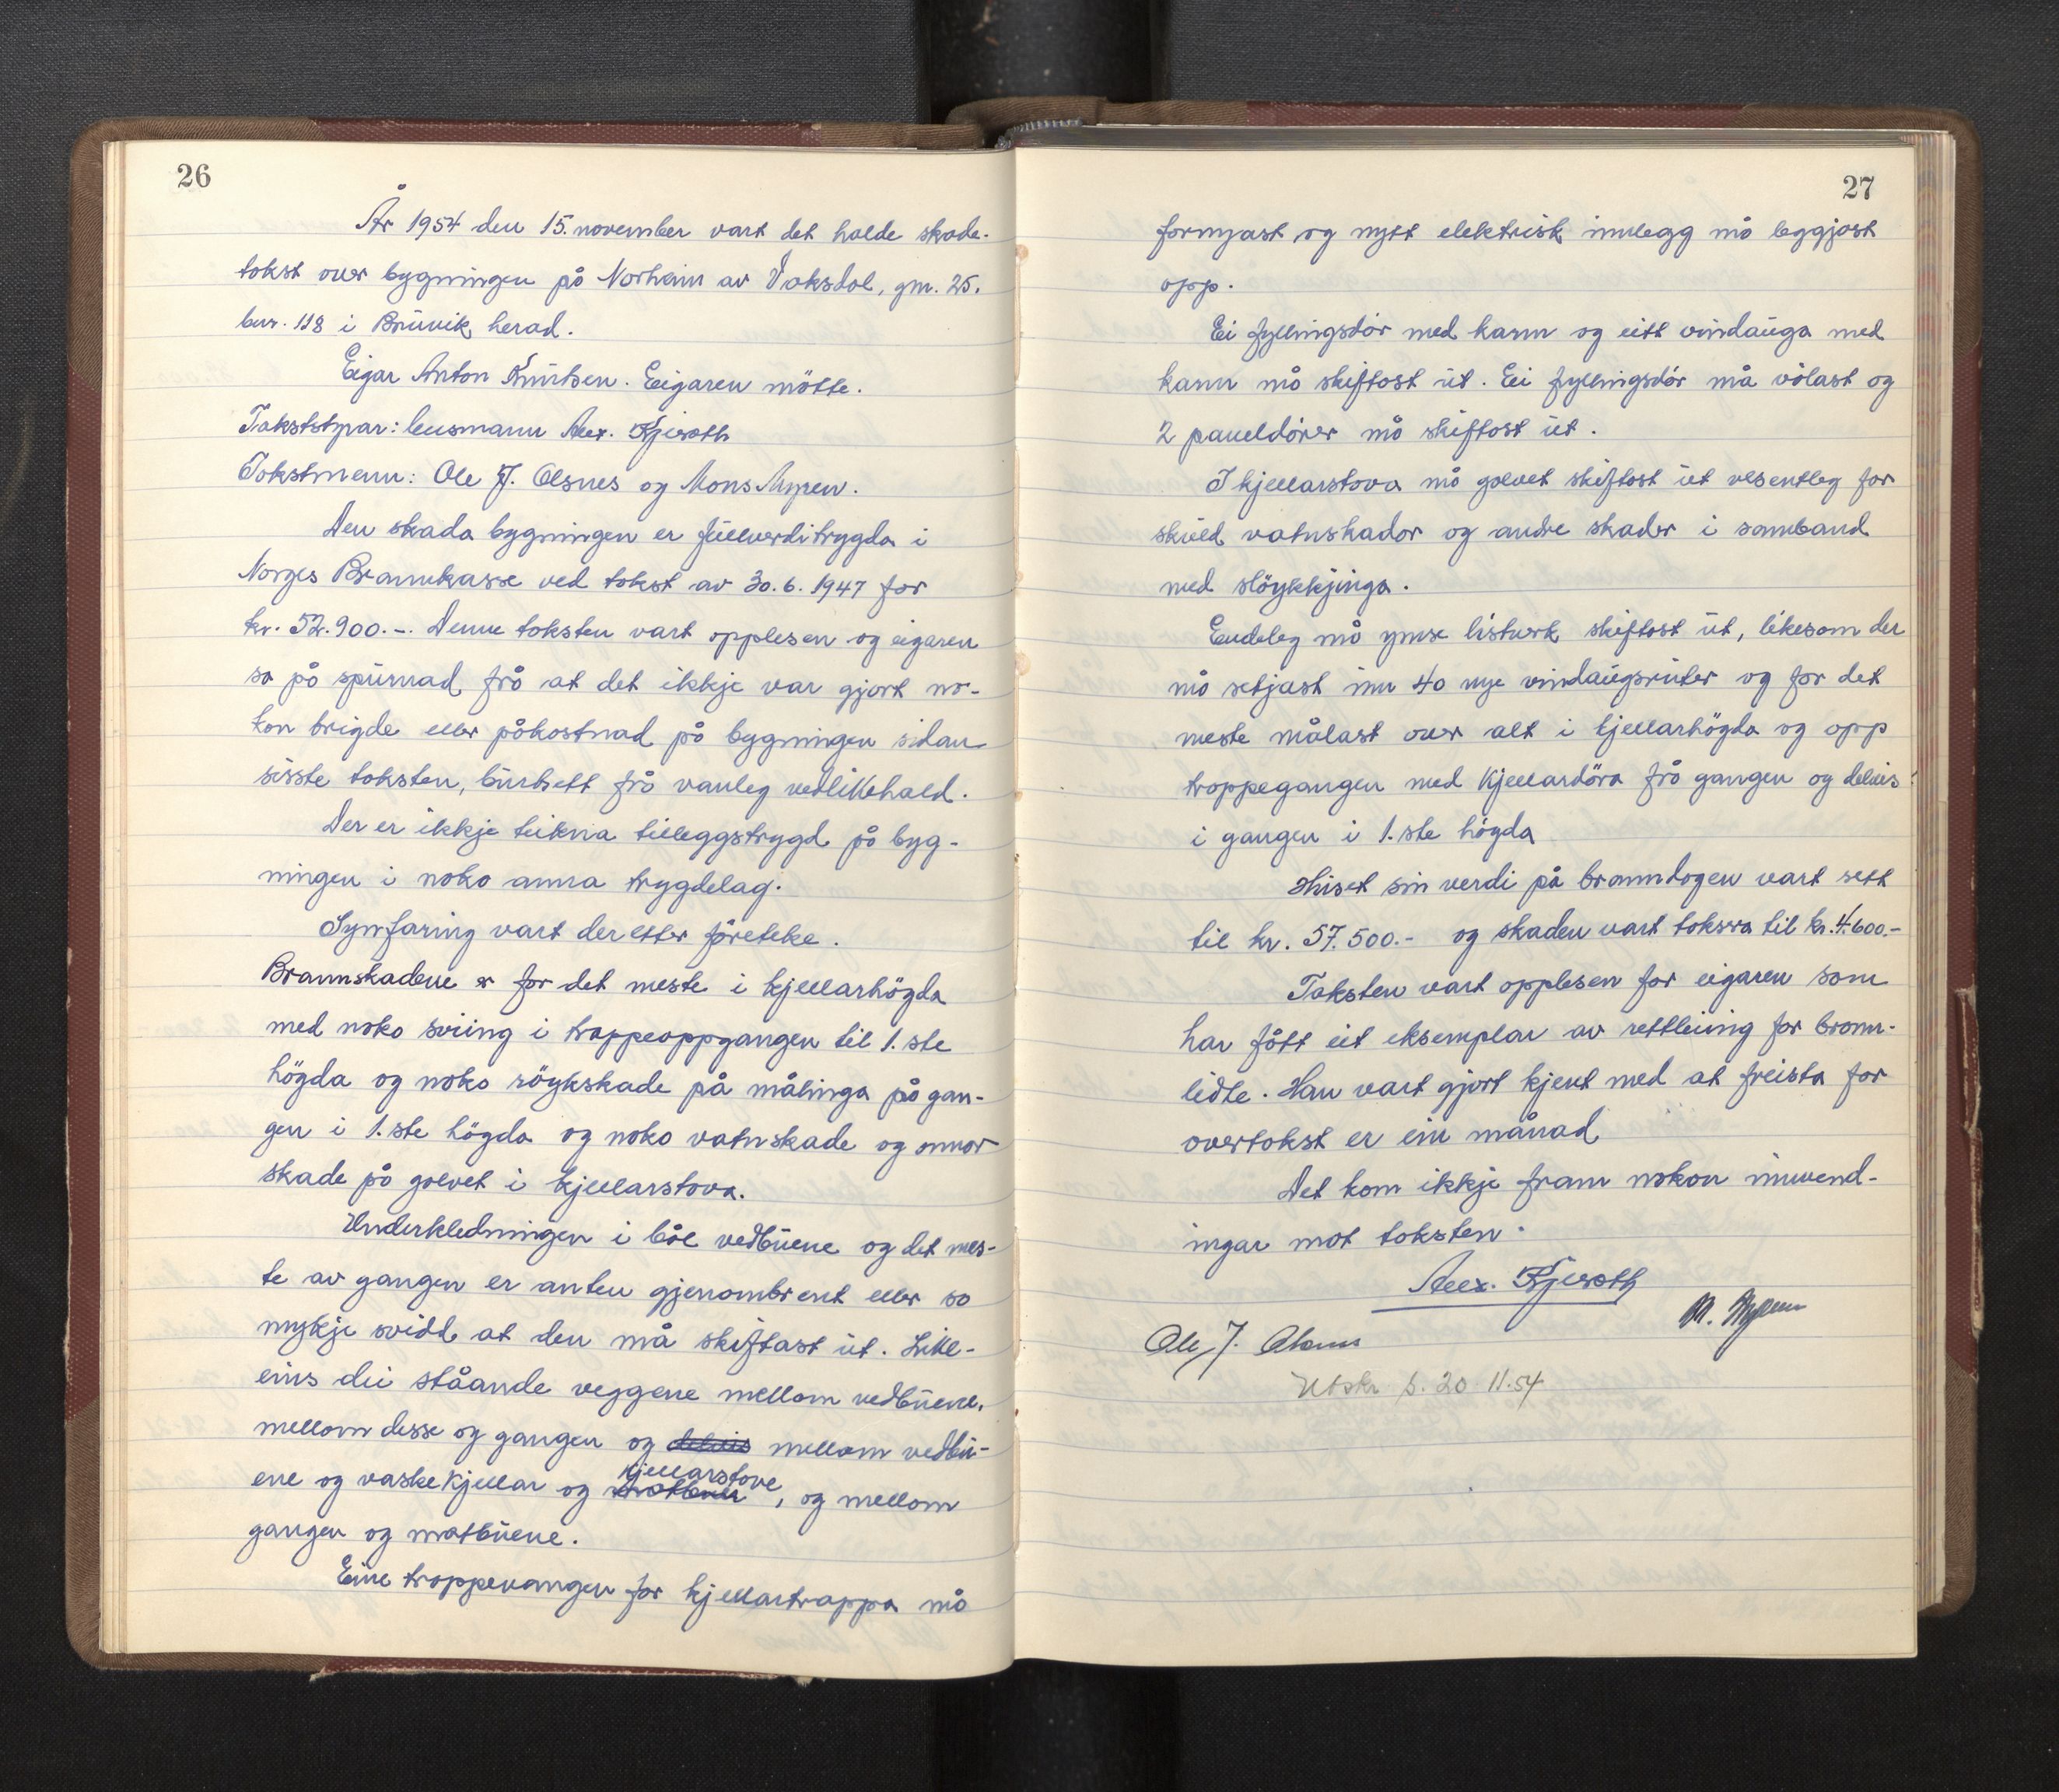 26
År 1954 den 15. november vart det halde skade-
takst over bygningen på Norheim av Vaksdal, gnr. 25.
bnr. 118 i Bruvik herad.
Eigar Anton Knutsen. Eigaren mötte.
Takststyrar: lensmann Alex. Kjieroth
Takstmenn: Ole J. Olsnes og Mons Myren.
Den skada bygningen er fullverditrygda i
Norges Brannkasse ved takst av 30.6.1947 for
kr. 52.900.-. Denne taksten vart opplesen og eigaren
sa på spurnad frå at det ikkje var gjort no-
kon brigde eller påkostnad på bygningen sidan
sisste taksten, burtsett frå vanleg vedlikehald.
Der er ikkje teikna tilleggstrygd på byg-
ningen i noko anna trygdelag.
Synfaring vart deretter företeke.
Brannskadene er for det meste i kjellarhögda
med noko sviing i trappeoppgangen til 1.ste
högda og noko röykskade på målinga på gan-
gen i 1.ste högda og noko vatnskade og annor
skade på golvet i kjellarstova.
Underkledningen i båe vedbuene og det mes-
te av gangen er anten gjenombrent eller so
mykje svidd at den må skiftast ut. Like-
eins dei ståande veggene mellom vedbuene,
mellom desse og gangen og delvis mellom vedbu-
ene og vaskekjellar og matbuer kjellarstove, og mellom
gangen og matbuene.
Eine trappevangen for kjellartrappa må
27
fornyast og nytt elektrisk innlegg må leggjast
opp.
Ei fyllingsdör med karm og eitt vindauga med
karm må skiftast ut. Ei fyllingsdör må völast og
2 paneldörer må skiftast ut.
I kjellarstova må golvet skiftast ut vesentleg for
skuld vatnskador og andre skader i samband
med slöykkjinga.
Endeleg må ymse listverk skiftast ut, likesom der
må setjast inn 40 nye vindaugsruter og for det
meste målast over alt i kjellarhögda og opp
trappegangen med kjellardöra frå gangen og delvis
i gangen i 1.ste högda
Huset sin verdi på branndagen vart sett
til kr. 57.500.- og skaden vart taksra til kr. 4.600.-
Taksten vart opplesen for eigaren som
har fått eit eksemplar av rettleiing for brann-
lidte. Han vart gjort kjent med at freista for
overtakst er ein månad
Det kom ikkje fram nokon innvend-
ingar mot taksten.
Alex. Kjieroth
M. Myren
Ole J. Olsnes
Utskr. s. 20 11.54